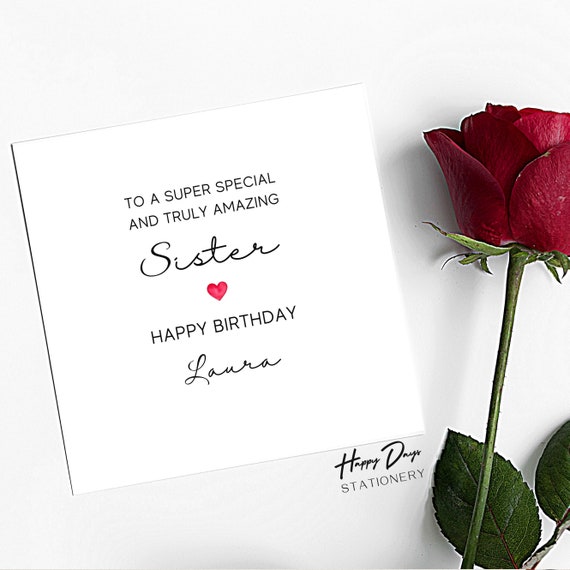 TO A SUPER SPECIAL
AND TRULY AMAZING
Sister
HAPPY BIRTHDAY
Laura
Happy Days
STATIONERY